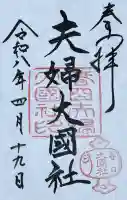 奉拝
夫婦大國社
令和八年四月十九日